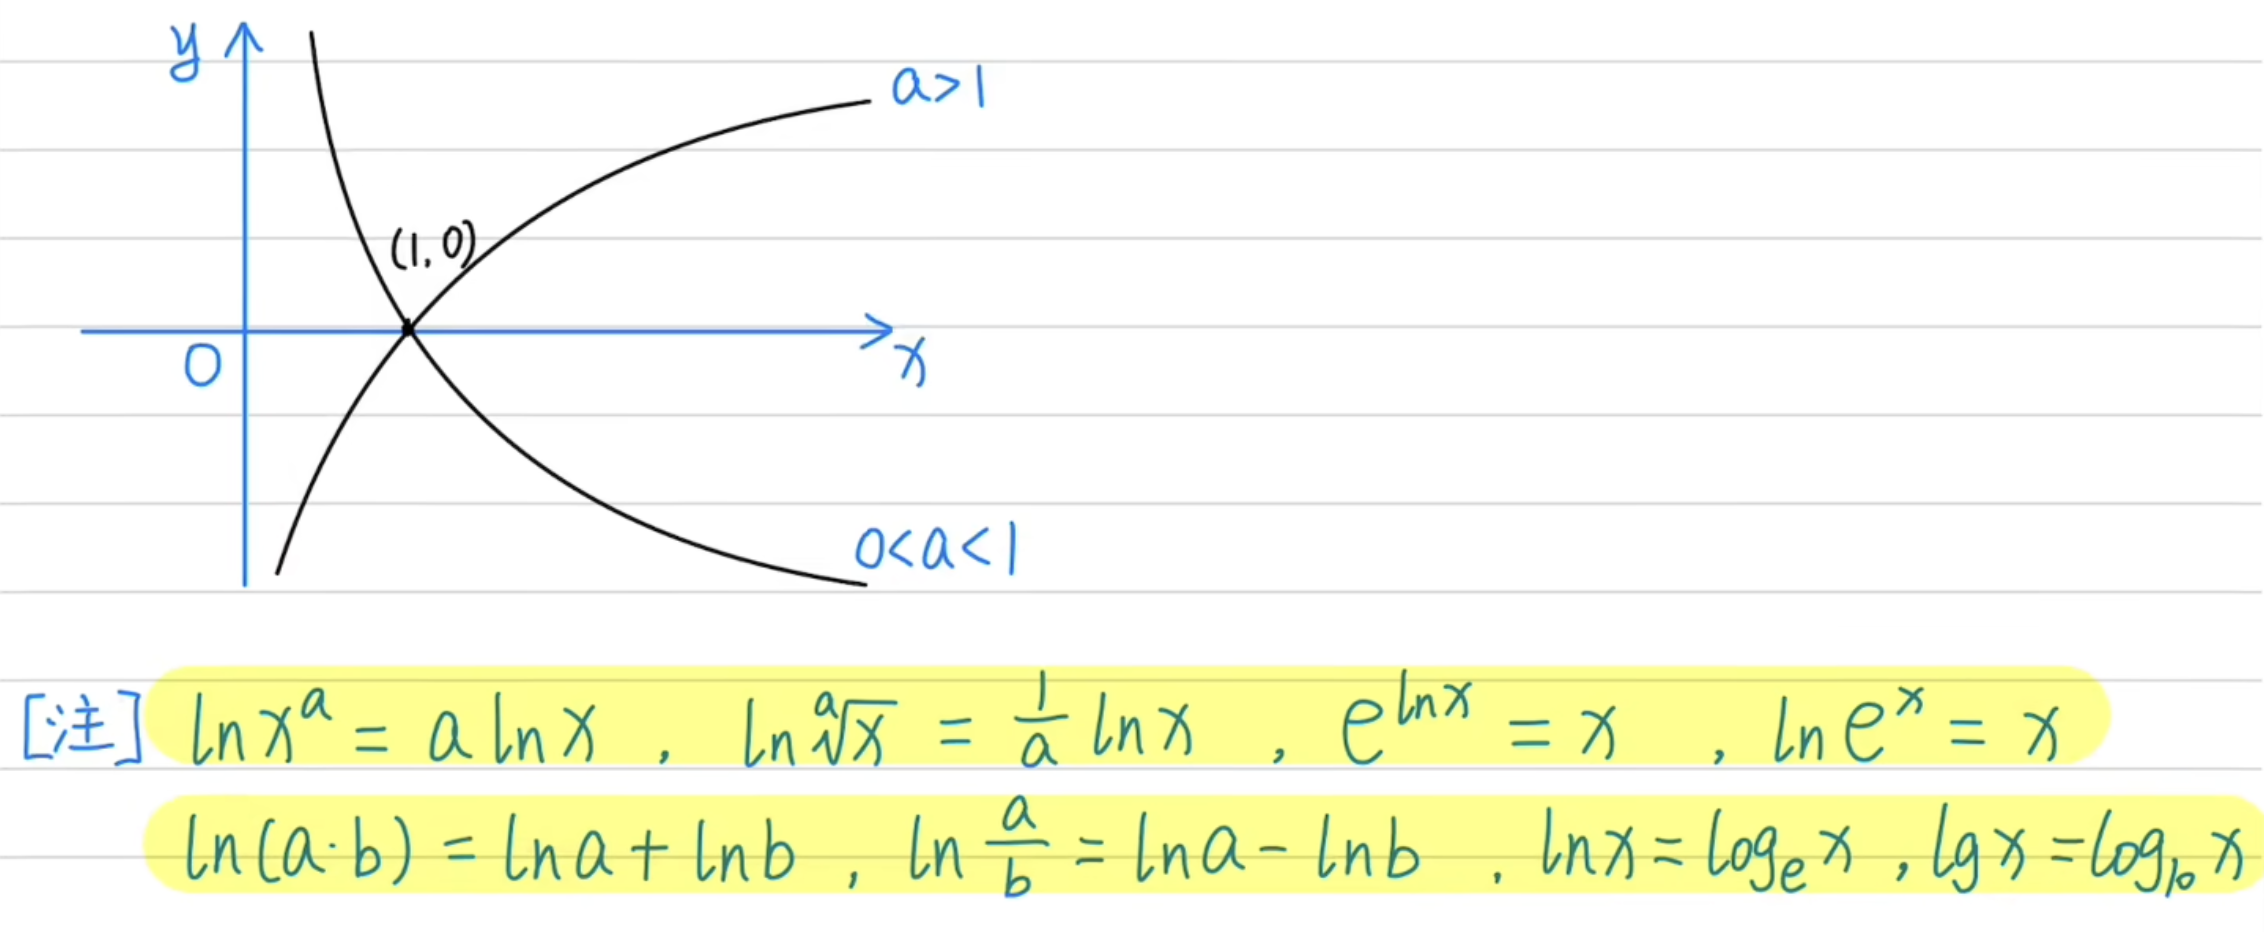 y
a>1
(1,0)
0
x
0<a<1
[注] ln x^a = a ln x , ln ᵃ√x = 1/a ln x , e^{ln x} = x , ln e^x = x
ln(a·b) = ln a + ln b , ln a/b = ln a - ln b , ln x = log_e x , lg x = log_10 x